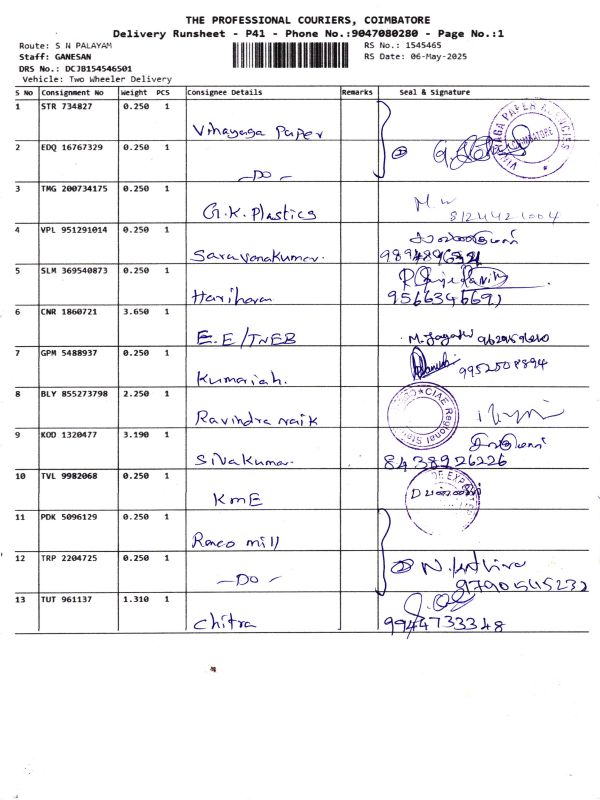 THE PROFESSIONAL COURIERS, COIMBATORE
Delivery Runsheet - P41 - Phone No.:9047080280 - Page No.:1
Route: S N PALAYAM
RS No.: 1545465
Staff: GANESAN
RS Date: 06-May-2025
DRS No.: DCJB154546501
Vehicle: Two Wheeler Delivery
S No Consignment No Weight PCS Consignee Details Remarks Seal & Signature
1 STR 734827 0.250 1 Vihayaga Paper
VINAYAGA PAPER AGENCIES
COIMBATORE
2 EDQ 16767329 0.250 1 -DO-
3 TMG 200734175 0.250 1 G.K. Plastics
8124421004
4 VPL 951291014 0.250 1 Saravanakumar.
5 SLM 369540873 0.250 1 Hariharan
9566346691
6 CNR 1860721 3.650 1 E.E/TNEB
7 GPM 5488937 0.250 1 Kumariah.
9952508894
8 BLY 855273798 2.250 1 Ravindra naik
CIAE Regional
9 KOD 1320477 3.190 1 Sivakumar.
8438926226
10 TVL 9982068 0.250 1 KmE
11 PDK 5096129 0.250 1 Ronco mill
12 TRP 2204725 0.250 1 -DO-
13 TUT 961137 1.310 1 Chitra
9944733348